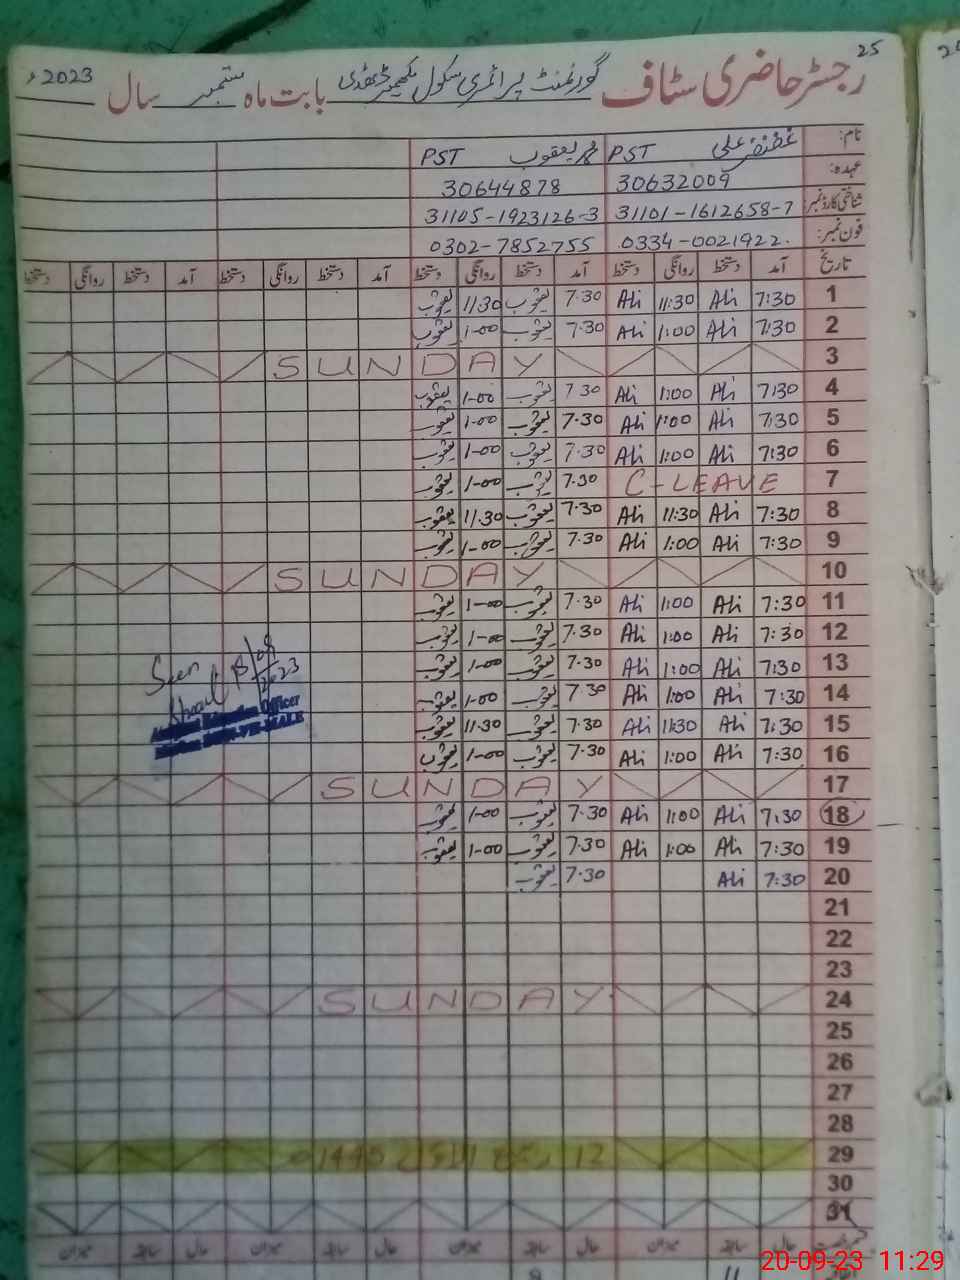 25
رجسٹر حاضری سٹاف گورنمنٹ پرائمری سکول بابت ماہ ستمبر سال 2023ء
نام: غضنفر علی PST محمد یعقوب PST
عہدہ: 30632009 30644878
شناختی کارڈ نمبر: 31101-1612658-7 31105-1923126-3
فون نمبر: 0334-0021922. 0302-7852755
تاریخ آمد دستخط روانگی دستخط آمد دستخط روانگی دستخط آمد دستخط روانگی دستخط آمد دستخط روانگی دستخط
1 7:30 Ali 11:30 Ali 7.30 یعقوب 11.30 یعقوب
2 7:30 Ali 1:00 Ali 7.30 یعقوب 1-00 یعقوب
3 SUNDAY
4 7:30 Ali 1:00 Ali 7.30 یعقوب 1-00 یعقوب
5 7:30 Ali 1:00 Ali 7.30 یعقوب 1-00 یعقوب
6 7:30 Ali 1:00 Ali 7.30 یعقوب 1-00 یعقوب
7 C-LEAVE 7.30 یعقوب 1-00 یعقوب
8 7:30 Ali 11:30 Ali 7.30 یعقوب 11.30 یعقوب
9 7:30 Ali 1:00 Ali 7.30 یعقوب 1-00 یعقوب
10 SUNDAY
11 7:30 Ali 1:00 Ali 7.30 یعقوب 1-00 یعقوب
12 7:30 Ali 1:00 Ali 7.30 یعقوب 1-00 یعقوب
13 7:30 Ali 1:00 Ali 7.30 یعقوب 1-00 یعقوب
14 7:30 Ali 1:00 Ali 7.30 یعقوب 1-00 یعقوب
15 7:30 Ali 11:30 Ali 7.30 یعقوب 11.30 یعقوب
16 7:30 Ali 1:00 Ali 7.30 یعقوب 1-00 یعقوب
17 SUNDAY
18 7:30 Ali 1:00 Ali 7.30 یعقوب 1-00 یعقوب
19 7:30 Ali 1:00 Ali 7.30 یعقوب 1-00 یعقوب
20 7:30 Ali 7.30 یعقوب
21
22
23
24 SUNDAY
25
26
27
28
29 12 ربیع الاول 1445ھ
30
31
Seen
2023
Education Officer
حال سابقہ میزان حال سابقہ میزان حال سابقہ میزان حال سابقہ میزان
20-09-23 11:29